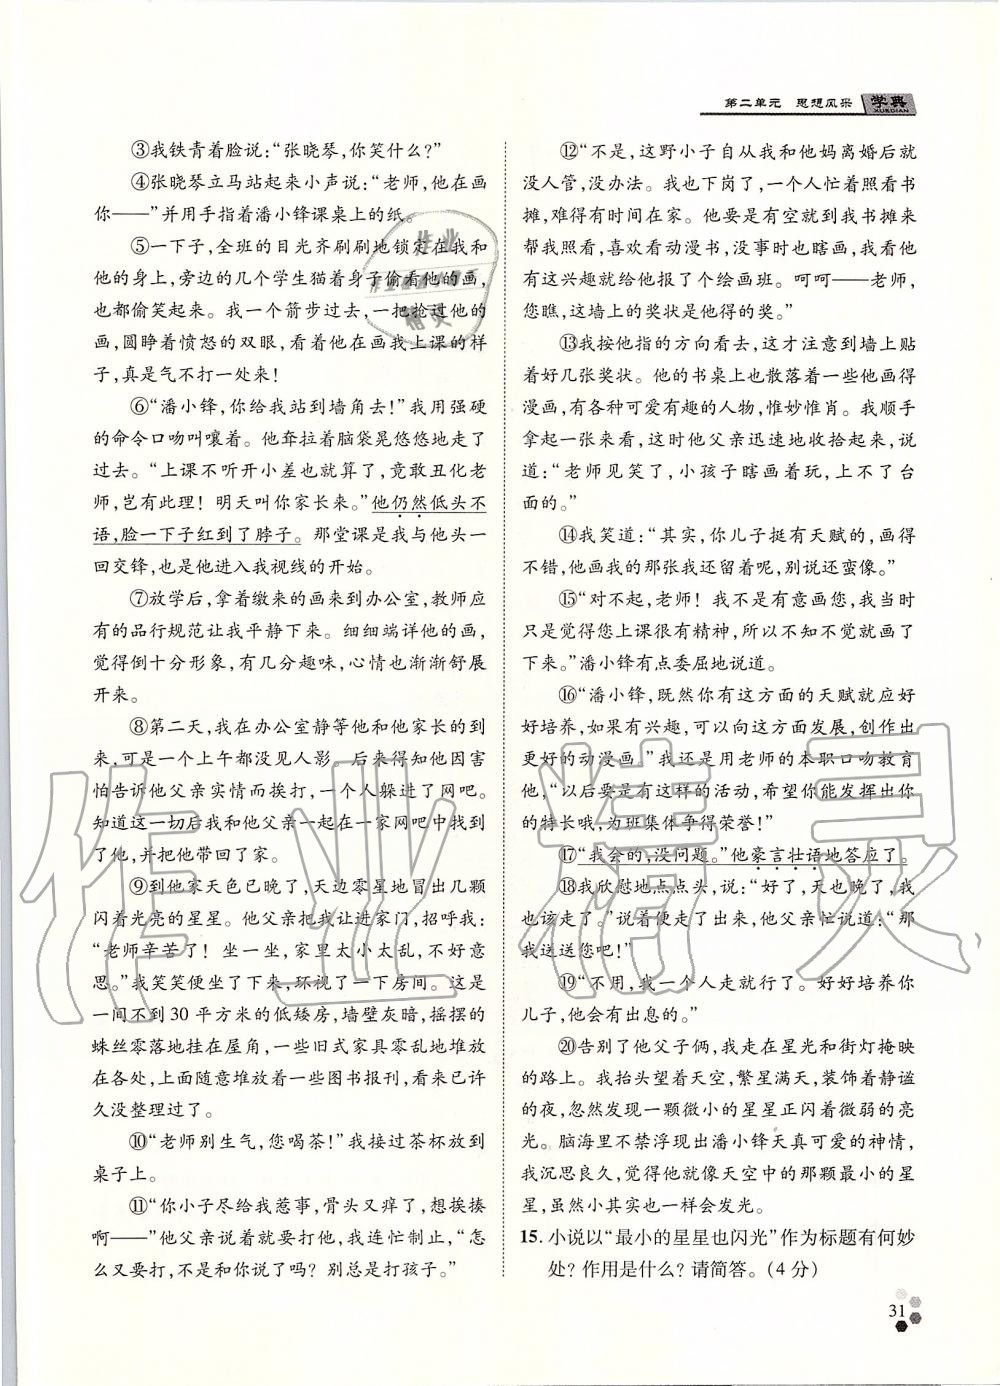 第二单元 思想风采 学典
XUEDIAN
③我铁青着脸说：“张晓琴，你笑什么？”
④张晓琴立马站起来小声说：“老师，他在画
你——”并用手指着潘小锋课桌上的纸。
⑤一下子，全班的目光齐刷刷地锁定在我和
他的身上，旁边的几个学生猫着身子偷看他的画，
也都偷笑起来。我一个箭步过去，一把抢过他的
画，圆睁着愤怒的双眼，看着他在画我上课的样
子，真是气不打一处来！
⑥“潘小锋，你给我站到墙角去！”我用强硬
的命令口吻叫嚷着。他耷拉着脑袋晃悠悠地走了
过去。“上课不听开小差也就算了，竟敢丑化老
师，岂有此理！明天叫你家长来。”他仍然低头不
语，脸一下子红到了脖子。那堂课是我与他头一
回交锋，也是他进入我视线的开始。
⑦放学后，拿着缴来的画来到办公室，教师应
有的品行规范让我平静下来。细细端详他的画，
觉得倒十分形象，有几分趣味，心情也渐渐舒展
开来。
⑧第二天，我在办公室静等他和他家长的到
来，可是一个上午都没见人影。后来得知他因害
怕告诉他父亲实情而挨打，一个人躲进了网吧。
知道这一切后我和他父亲一起在一家网吧中找到
了他，并把他带回了家。
⑨到他家天色已晚了，天边零星地冒出几颗
闪着光亮的星星。他父亲把我让进家门，招呼我：
“老师辛苦了！坐一坐，家里太小太乱，不好意
思。”我笑笑便坐了下来，环视了一下房间。这是
一间不到 30 平方米的低矮房，墙壁灰暗，摇摆的
蛛丝零落地挂在屋角，一些旧式家具零乱地堆放
在各处，上面随意堆放着一些图书报刊，看来已许
久没整理过了。
⑩“老师别生气，您喝茶！”我接过茶杯放到
桌子上。
⑪“你小子尽给我惹事，骨头又痒了，想挨揍
啊——”他父亲说着就要打他，我连忙制止，“怎
么又要打，不是和你说了吗？别总是打孩子。”
⑫“不是，这野小子自从我和他妈离婚后就
没人管，没办法。我也下岗了，一个人忙着照看书
摊，难得有时间在家。他要是有空就到我书摊来
帮我照看，喜欢看动漫书，没事时也瞎画，看他
有这兴趣就给他报了个绘画班。呵呵——老师，
您瞧，这墙上的奖状是他得的奖。”
⑬我按他指的方向看去，这才注意到墙上贴
着好几张奖状。他的书桌上也散落着一些他画得
漫画，有各种可爱有趣的人物，惟妙惟肖。我顺手
拿起一张来看，这时他父亲迅速地收拾起来，说
道：“老师见笑了，小孩子瞎画着玩，上不了台
面的。”
⑭我笑道：“其实，你儿子挺有天赋的，画得
不错，他画我的那张我还留着呢，别说还蛮像。”
⑮“对不起，老师！我不是有意画您，我当时
只是觉得您上课很有精神，所以不知不觉就画了
下来。”潘小锋有点委屈地说道。
⑯“潘小锋，既然你有这方面的天赋就应好
好培养，如果有兴趣，可以向这方面发展，创作出
更好的动漫画。”我还是用老师的本职口吻教育
他，“以后要是有这样的活动，希望你能发挥出你
的特长哦，为班集体争得荣誉！”
⑰“我会的，没问题。”他豪言壮语地答应了。
⑱我欣慰地点点头，说：“好了，天也晚了，我
也该走了。”说着便走了出来，他父亲忙说道：“那
我送送您吧！”
⑲“不用，我一个人走就行。好好培养你
儿子，他会有出息的。”
⑳告别了他父子俩，我走在星光和街灯掩映
的路上。我抬头望着天空，繁星满天，装饰着静谧
的夜，忽然发现一颗微小的星星正闪着微弱的亮
光。脑海里不禁浮现出潘小锋天真可爱的神情，
我沉思良久，觉得他就像天空中的那颗最小的星
星，虽然小其实也一样会发光。
15. 小说以“最小的星星也闪光”作为标题有何妙
处？作用是什么？请简答。（4 分）
31
作业
精灵
作业精灵